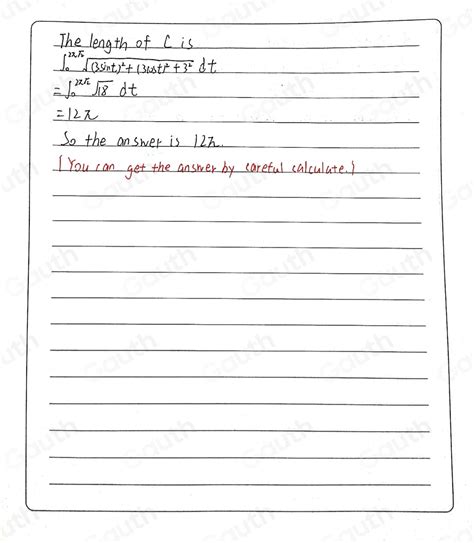 The length of C is
∫₀^{2π√2} √((3sint)²+(3cost)²+3²) dt
=∫₀^{2π√2} √18 dt
=12π
So the answer is 12π.
(You can get the answer by careful calculate.)
Gauth